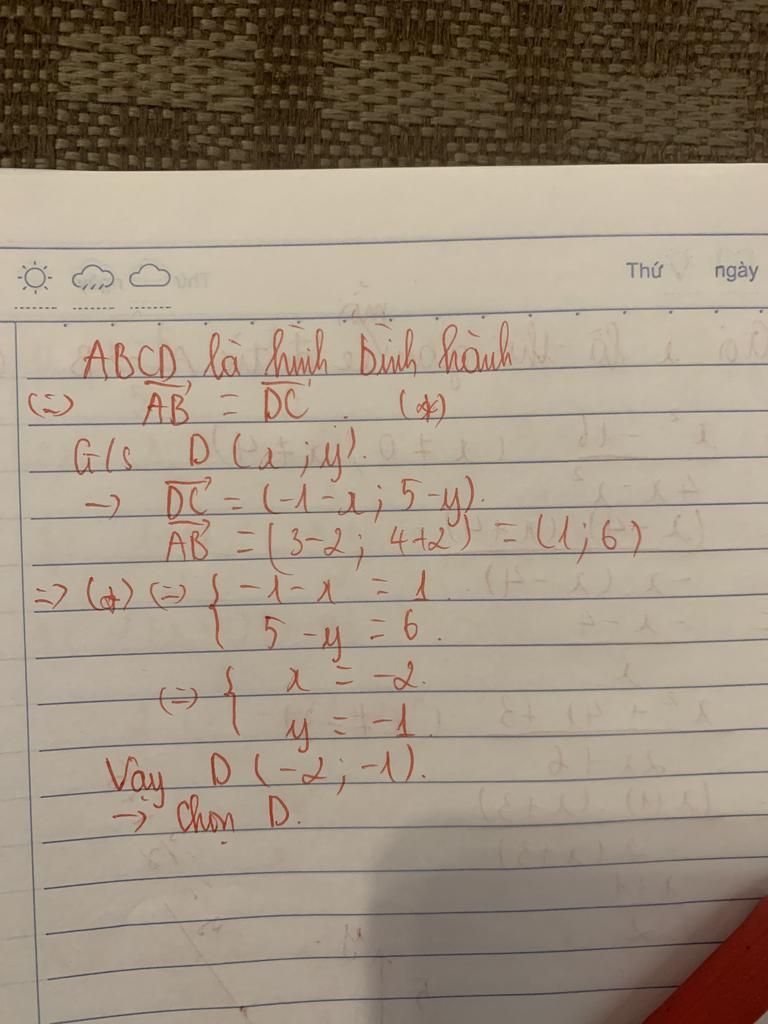 Thứ ngày
ABCD là hình bình hành
(=) AB = DC. (*)
G/s D(x; y).
→ DC = (-1-x; 5-y).
AB = (3-2; 4+2) = (1; 6)
=> (*) (=) { -1-x = 1
5-y = 6.
(=) { x = -2.
y = -1
Vậy D(-2; -1).
→ Chọn D.